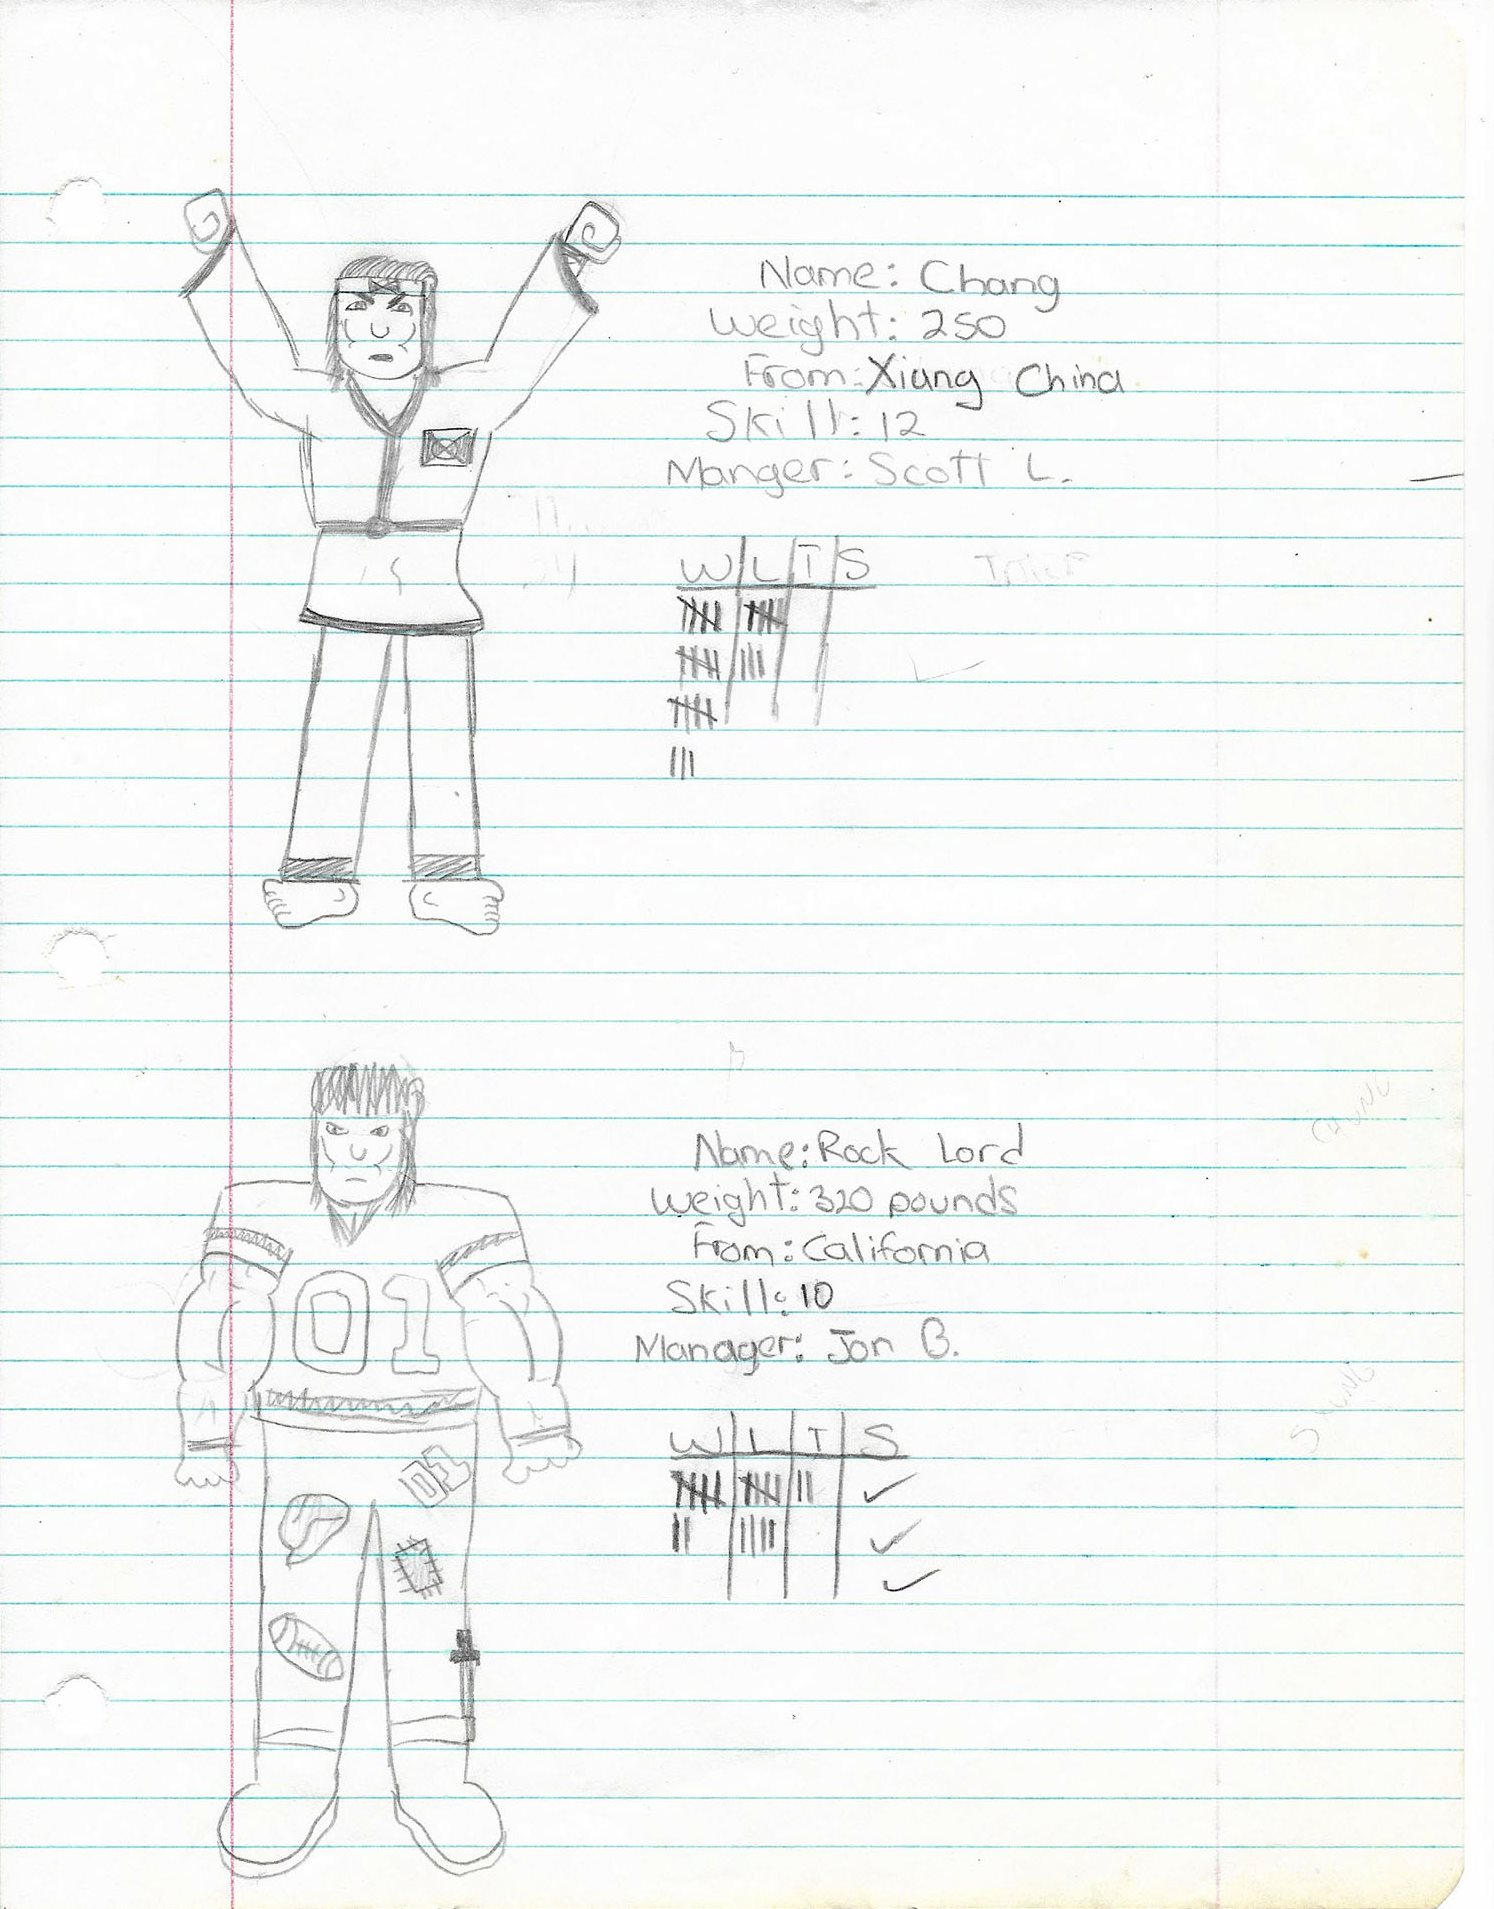 Name: Chang
Weight: 250
From: Xiang China
Skill: 12
Manger: Scott L.
W L T S
Name: Rock Lord
Weight: 320 pounds
From: California
Skill: 10
Manager: Jon B.
01
01
W L T S